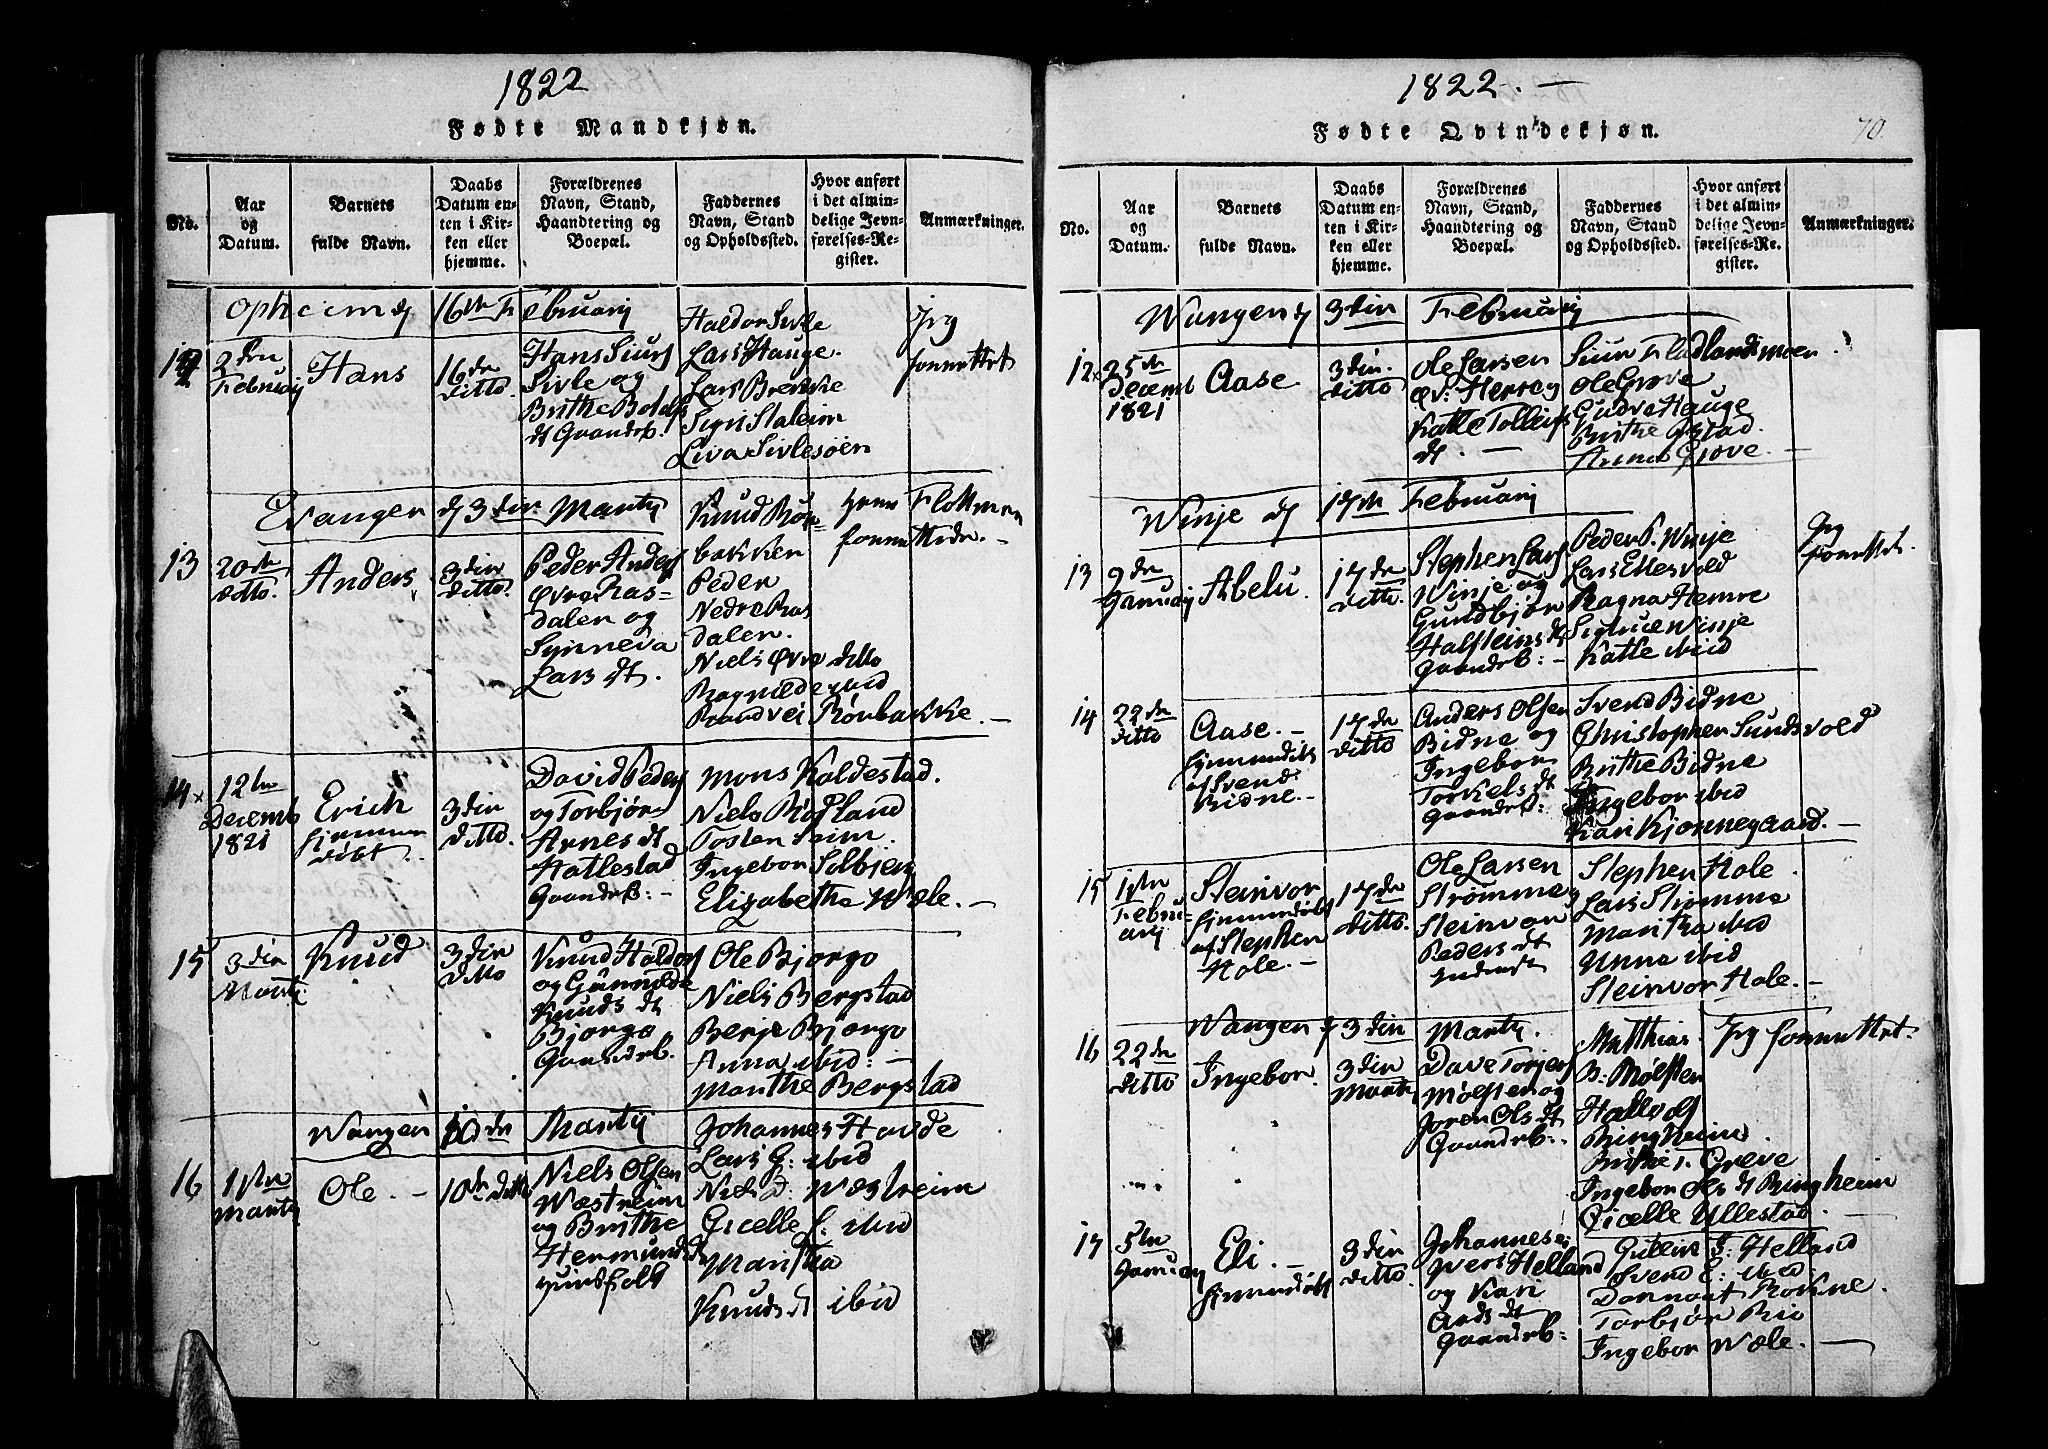 1822
Fødte Mandkjøn.
No.
Aar og Datum.
Barnets fulde Navn.
Daabs Datum enten i Kirken eller hjemme.
Forældrenes Navn, Stand, Haandtering og Boepæl.
Faddernes Navn, Stand og Opholdssted.
Hvor anført i det almindelige Jevnførelses-Register.
Anmærkninger.
Opheim d 16de Februarij
12
2den Februarij
Hans
16de ditto
Hans Siurs
Sivle og
Brithe Botolfs
dt Gaardrb.
Haldor Sivle
Lars Hauge.
Lars Brekke
Sigri Staleim
Liva Sivlesøen
Jeg
forrettet
Evanger d 3din Martij
13
20de ditto.
Anders
3din ditto.
Peder Anders
Øvre Ras-
dalen og
Synneva
Lars dt.
Knud Røn-
bakken
Peder
Nedre Ras
dalen.
Niels Øvre ditto
Ragnilde ibid
Randvei Rønbakke. —
Herr Flottman
forrettede. —
14
12te Decemb 1821
Erich
hjemme
døbt.
3din ditto.
David Peders
og Torbjør
Arnes dt
Hattestad
Gaardrb: —
Mons Kaldestad.
Niels Røfland
Tosten Seim
Ingebor Solbjerg
Elisabetha Wæle. —
15
3din Martij.
Knud
3din ditto
Knud Haldors
og Gunnilde
Knuds dt
Bjørgo
Gaardrb.
Ole Bjørgo
Niels Bergstad
Berje Bjørgo
Anna ibid: —
Marithe Bergstad
Wangen 10de Martij
16
1ste Martij
Ole. —
10de ditto
Niels Olsen
Wæstreim
og Brithe
Hermunds dt
huusfolk
Johannes Havde
Lars G: ibid
Niels D: Wæstreim
Gicelle S: ibid
Maritha
Knuds dt ibid
1822. —
Fødte Qvindekjøn.
70.
No.
Aar og Datum.
Barnets fulde Navn.
Daabs Datum enten i Kirken eller hjemme.
Forældrenes Navn, Stand, Haandtering og Boepæl.
Faddernes Navn, Stand og Opholdssted.
Hvor anført i det almindelige Jevnførelses-Register.
Anmærkninger.
Wangen d 3din Februarij
12
25de Decemb 1821
Aase
3din. ditto
Ole Larsen
øv: Herre og
Katle Tolleifs
dt. —
Siur Fladlandsmoen.
Ole Grove
Gudve Hauge
Brithe Gistad.
Anna Grove. —
Winje d 17de Februarij
13
9de Januarij
Abelu.
17de ditto.
Stephen Lars
Winje og
Gundbjør
Halsteins dt
Gaardrb: —
Peder P. Winje
Lars Ellesvold
Ragna Hemre
Sigtrud Winje
Katle ibid
Jeg
forrettet.
14
22de ditto
Aase. —
hjemmedøbt
af Svend
Bidne. —
17de ditto
Anders Olsen
Bidne og
Ingebor
Torkels dt
Gaardrb:
Svend Bidne
Christopher Sundsvold
Brithe Bidne
Ingebor ibid
Kari Kjønnegaard. —
15
1ste Februarij
Steinvor
hjemmedøbt
af Stephen
Hole. —
17de ditto.
Ole Larsen
Strømme og
Steinvor
Peders dt
Stephen Hole.
Lars Strømme
Maritha ibid
Unna ibid
Steinvor Hole. —
Wangen d 3din Martij.
16
22de ditto
Ingebor.
3din Martij
Dave Torjers
Mølster og
Joren Ols dt
Gaardrb:.
Matthias
B: Mølster
Hallvof
Ringheim.
Brithe T. Greve
Ingebor Ols dt Ringheim
Gicelle Ullestad. —
Jeg forrettet.
17
5te Januarij
Eli. —
hjemmedøbt
3din ditto.
Johannes
Ivers Helland
og Kari
Ands dt
Gaardrb:
Gullik J: Helland
Svend E: ibid
Dannort Rokne.
Torbjør Rio
Ingebor Wæle. —